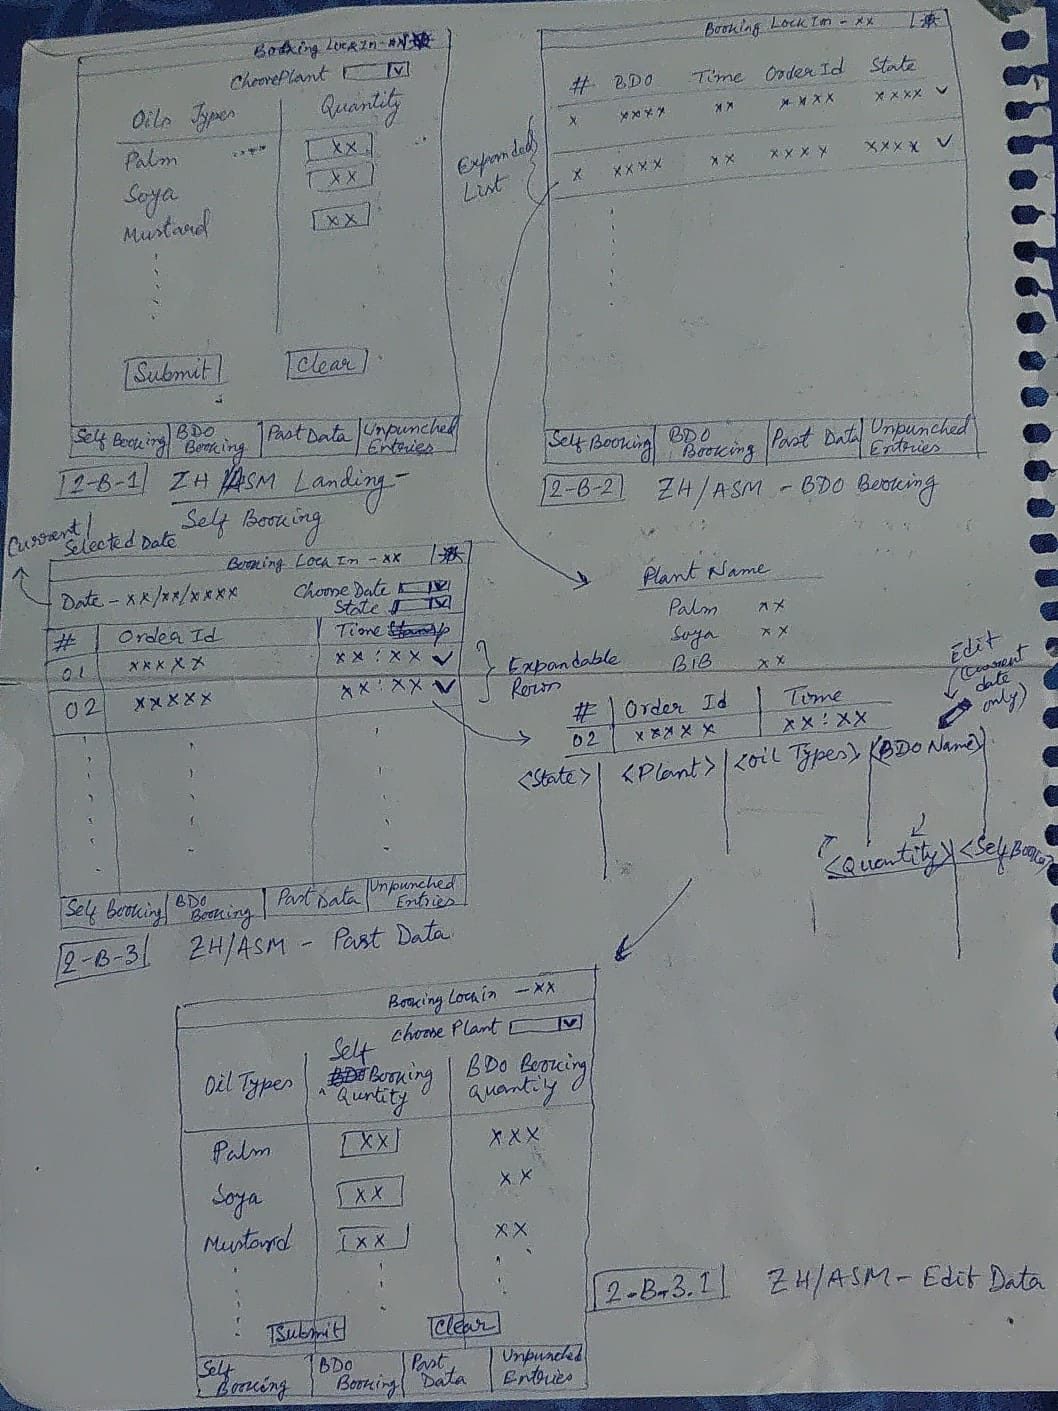 Booking Lock In - xx
Choose Plant
Oils Types Quantity
Palm xx
Soya xx
Mustard xx
Submit Clear
Self Booking BDO Booking Past Data Unpunched Entries
2-B-1 ZH/ASM Landing -
Self Booking
Booking Lock In - xx
# BDO Time Order Id State
x xxxx xx xxxx xxxx
x xxxx xx xxxx xxxx
Expanded
List
Self Booking BDO Booking Past Data Unpunched Entries
2-B-2 ZH/ASM - BDO Booking
Current/
Selected Date
Booking Lock In - xx
Date - xx/xx/xxxx Choose Date
State
# Order Id Time
01 xxxxx xx:xx
02 xxxxx xx:xx
Expandable
Rows
Self Booking BDO Booking Past Data Unpunched Entries
2-B-3 ZH/ASM - Past Data
Plant Name
Palm xx
Soya xx
BIB xx
Edit
(Current
date
only)
# Order Id Time
02 xxxxx xx:xx
<State> <Plant> <Oil Types> <BDO Name>
<Quantity> <Self Booking>
Booking Lock in - xx
Choose Plant
Oil Types Self Booking Quntity BDO Booking Quantity
Palm xx xxx
Soya xx xx
Mustard xx xx
Submit Clear
Self Booking BDO Booking Past Data Unpunched Entries
2-B-3.1 ZH/ASM - Edit Data